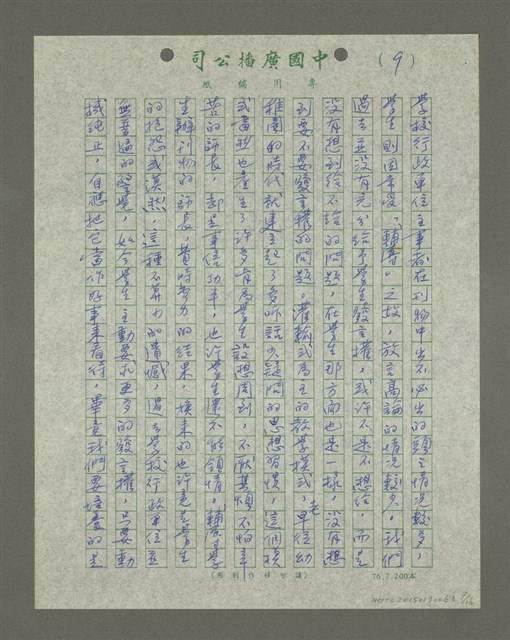 司公播廣國中
（9）
紙稿用專
學校行政單位主事者在刊物中出不必出的頭之情況較多，
學生則因常受「輔導」之故，放言高論的情況較少。我們
過去並沒有充分給予學生發言權，或許不是不想給，而是
沒有想到給不給的問題，在學生那方面也是一樣，沒有想
到要不要發言權的問題。灌輸式為主的教學模式，早從幼
稚園的時代就建立起了多聽話少疑問的思想習慣，這個模
式當然也產生了許多肯為學生設想周到，不厭其煩不怕辛
苦的師長，卻是事倍功半，也許學生還不能領情，輔導學
生辦刊物的師長，費時勞力的結果，換來的也許竟是學生
的抱怨或漠然，這種不算小的遺憾，過去學校行政單位並
無普遍的警覺，如今學生主動要求更多的發言權，只要動
機純正，自應把它當作好事來看待，畢竟我們要培養的是
（請勿移作別用）
76.7.200本